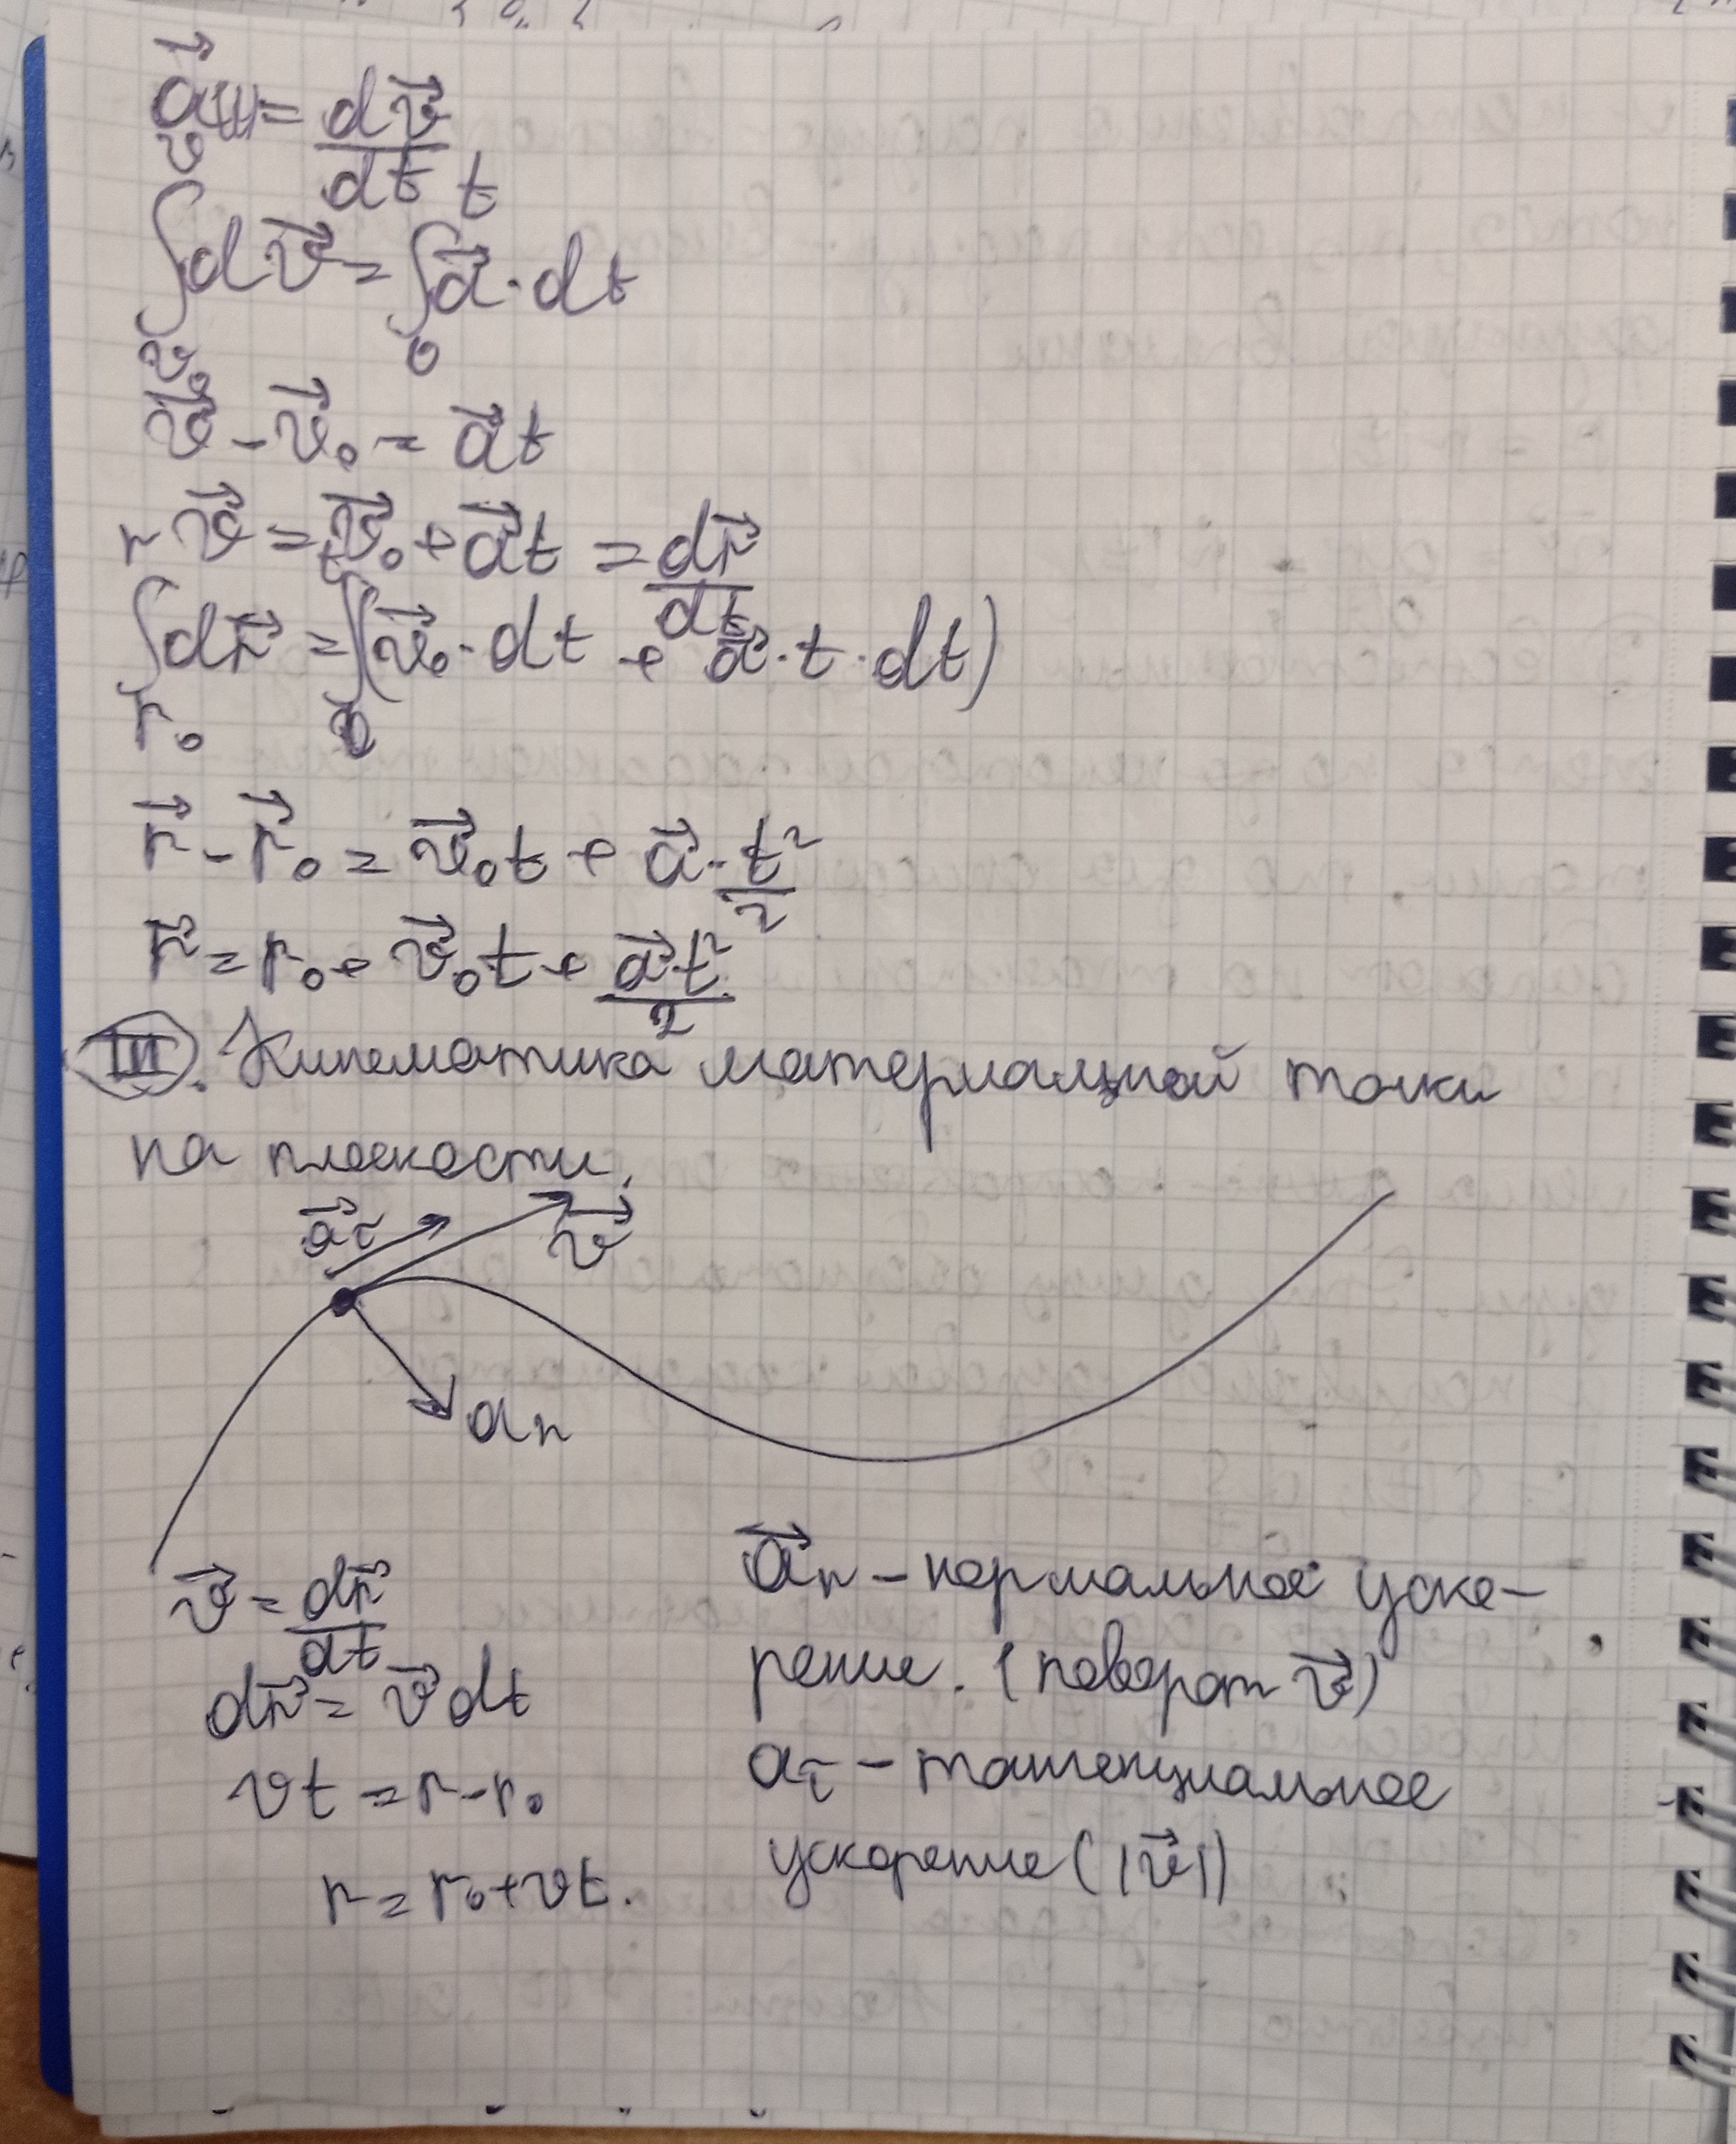 a⃗ = dv⃗/dt
∫_{v₀}^{v} dv⃗ = ∫_{0}^{t} a⃗ · dt
v⃗ - v⃗₀ = a⃗t
v⃗ = v⃗₀ + a⃗t = dr⃗/dt
∫_{r₀}^{r} dr⃗ = ∫_{0}^{t} (v⃗₀ · dt + a⃗ · t · dt)
r⃗ - r⃗₀ = v⃗₀t + a⃗ · t²/2
r⃗ = r₀ + v⃗₀t + a⃗·t²/2
III. Кинематика материальной точки
на плоскости.
a⃗τ
v⃗
an
v⃗ = dr⃗/dt
dr⃗ = v⃗dt
vt = r - r₀
r = r₀ + vt.
a⃗n – нормальное уско-
рение. (поворот v⃗)
aτ – тангенциальное
ускорение (|v⃗|)